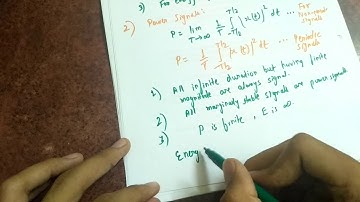 3) For energy
2) Power Signals:
P = lim T→∞ 1/T ∫_{-T/2}^{T/2} |x(t)|² dt ... For Non-periodic signals
P = 1/T ∫_{-T/2}^{T/2} |x(t)|² dt ... Periodic signals
1) All infinite duration but having finite
magnitude are always signal.
2) All marginally stable signals are power signals
3) P is finite, E is ∞.
Energy